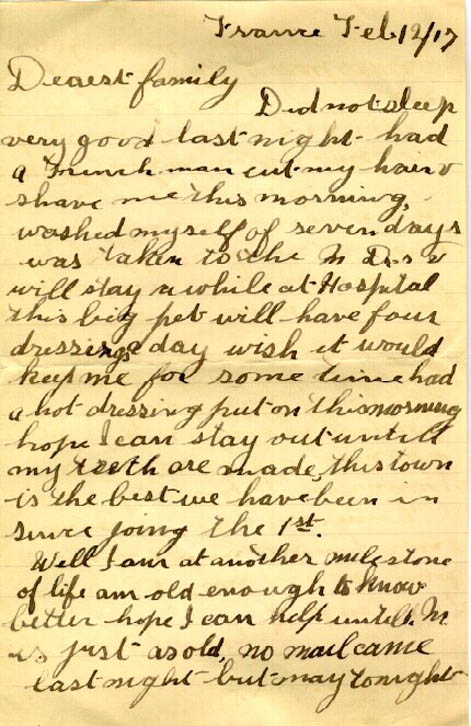 France Feb 12/17
Dearest family
Did not sleep
very good last night had
a French man cut my hair &
shave me this morning,
washed myself of seven days
was taken to the M Drs &
will stay a while at Hospital
this big pet will have four
dressings a day wish it would
keep me for some time had
a hot dressing put on this morning
hope I can stay out untill
my teeth are made, this town
is the best we have been in
since joing the 1st.
Well I am at another milestone
of life am old enough to know
better hope I can help untill M
is just as old, no mail came
last night but may tonight